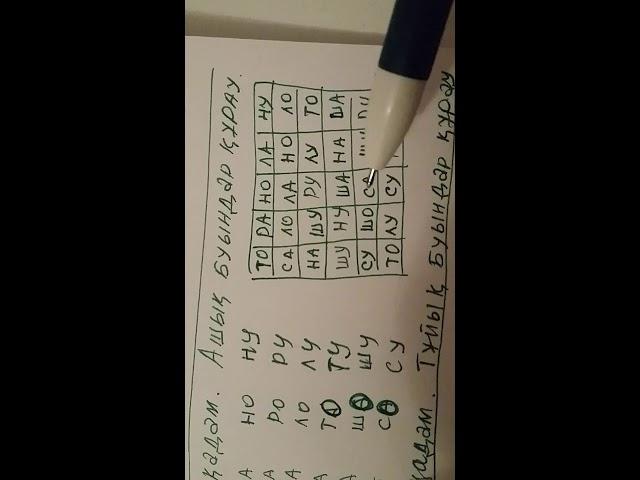 қадам. Ашық буындар құрау.
А НО НУ ТО РА НО ЛА НУ
А РО РУ СА ЛО ЛА НО ЛО
А ЛО ЛУ НА ШУ РУ ЛУ ТО
А ТО ТУ ШУ НУ ША НА ША
ШО ШУ СУ ШО СА
СО СУ ТО ЛУ СУ
қадам. Тұйық буындар құрау